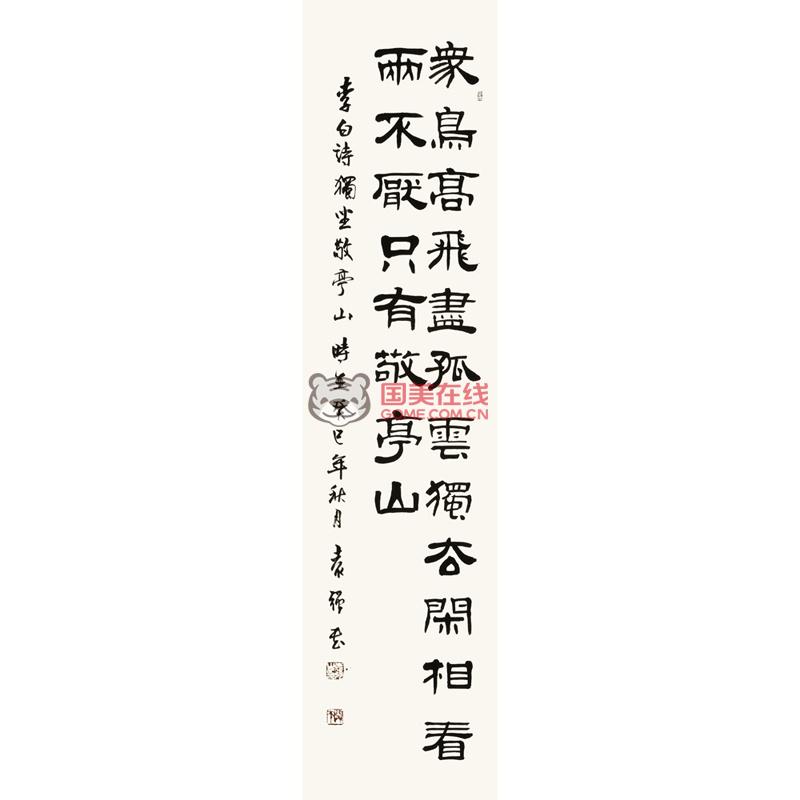 衆鳥髙飛盡孤雲獨去閑相看
兩不厭只有敬亭山
李白詩獨坐敬亭山時在癸巳年秋月袁強书
国美在线
GOME.COM.CN